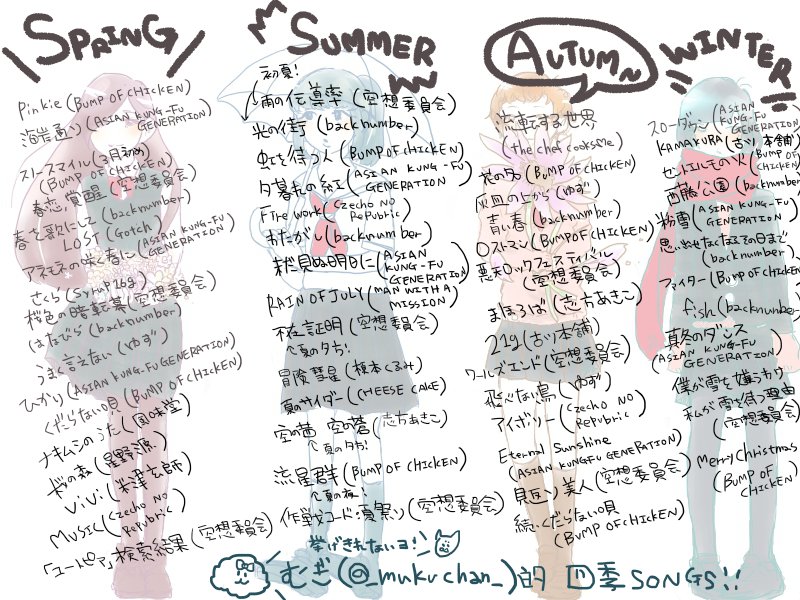 SPRING
Pinkie (BUMP OF CHICKEN)
海岸通り (ASIAN KUNG-FU
GENERATION)
スリーマイル (3月初め)
(BUMP OF CHICKEN)
春恋、覚醒 (空想委員会)
春を歌にして (backnumber)
LOST (Gotch)
アネモネの咲く春に (ASIAN KUNG-FU
GENERATION)
さくら (Syrup16g)
桜色の暗転幕 (空想委員会)
はなびら (backnumber)
うまく言えない (ゆず)
ひかり (ASIAN KUNG-FU GENERATION)
くだらない唄 (BUMP OF CHICKEN)
ナキムシのうた (風味堂)
ばらの森 (星野源)
vivi (米津玄師)
MUSIC (CZECHO NO
REPUBRIC)
「ユートピア」検索結果 (空想委員会)
SUMMER
初夏!
雨の伝導率 (空想委員会)
光の街 (backnumber)
虹を待つ人 (BUMP OF CHICKEN)
夕暮れの紅 (ASIAN KUNG-FU
GENERATION
Fire Work (CZECHO NO
REPUBRIC)
わたがし (backnumber)
未だ見ぬ明日に (ASIAN
KUNG-FU
GENERATION)
RAIN OF JULY (MAN WITH A
MISSION)
不在証明 (空想委員会)
夏の夕方!
冒険彗星 (榎本くるみ)
夏のサイダー (CHEESE CAKE)
空の茜 空の蒼 (志方あきこ)
↑夏の夕方!
流星群 (BUMP OF CHICKEN)
↑夏の夜!
作戦コード:夏祭り (空想委員会)
AUTUMN
流転する世界
(the chef cooks me)
花の名 (BUMP OF CHICKEN)
灰皿の上から (ゆず)
青い春 (backnumber)
ロストマン (BUMP OF CHICKEN)
悪天ロックフェスティバル
(空想委員会)
まほろば (志方あきこ)
21g (古ツ本舗)
ワールズエンド (空想委員会)
飛べない鳥 (ゆず)
アイボリー (CZECHO NO
REPUBRIC)
Eternal Sunshine
(ASIAN KUNGFU GENERATION)
見返り美人 (空想委員会)
続・くだらない唄
(BUMP OF CHICKEN)
WINTER
スローダウン (ASIAN
KUNG-FU
GENERATION)
KAMAKURA (古ツ本舗)
セントエルモの火 (BUMP OF
CHICKEN)
西藤公園 (backnumber)
粉雪 (ASIAN KUNG-FU
GENERATION)
思い出せなくなるその日まで
(backnumber)
ファイター (BUMP OF CHICKEN)
fish (backnumber)
真冬のダンス
(ASIAN KUNG-FU
GENERATION)
僕が雪を嫌うわけ
私が雪を待つ理由
(空想委員会)
Merry Christmas
(BUMP OF
CHICKEN)
挙げきれないヨ!
むぎ (@_mukuchan_) 的 四季SONGS!!